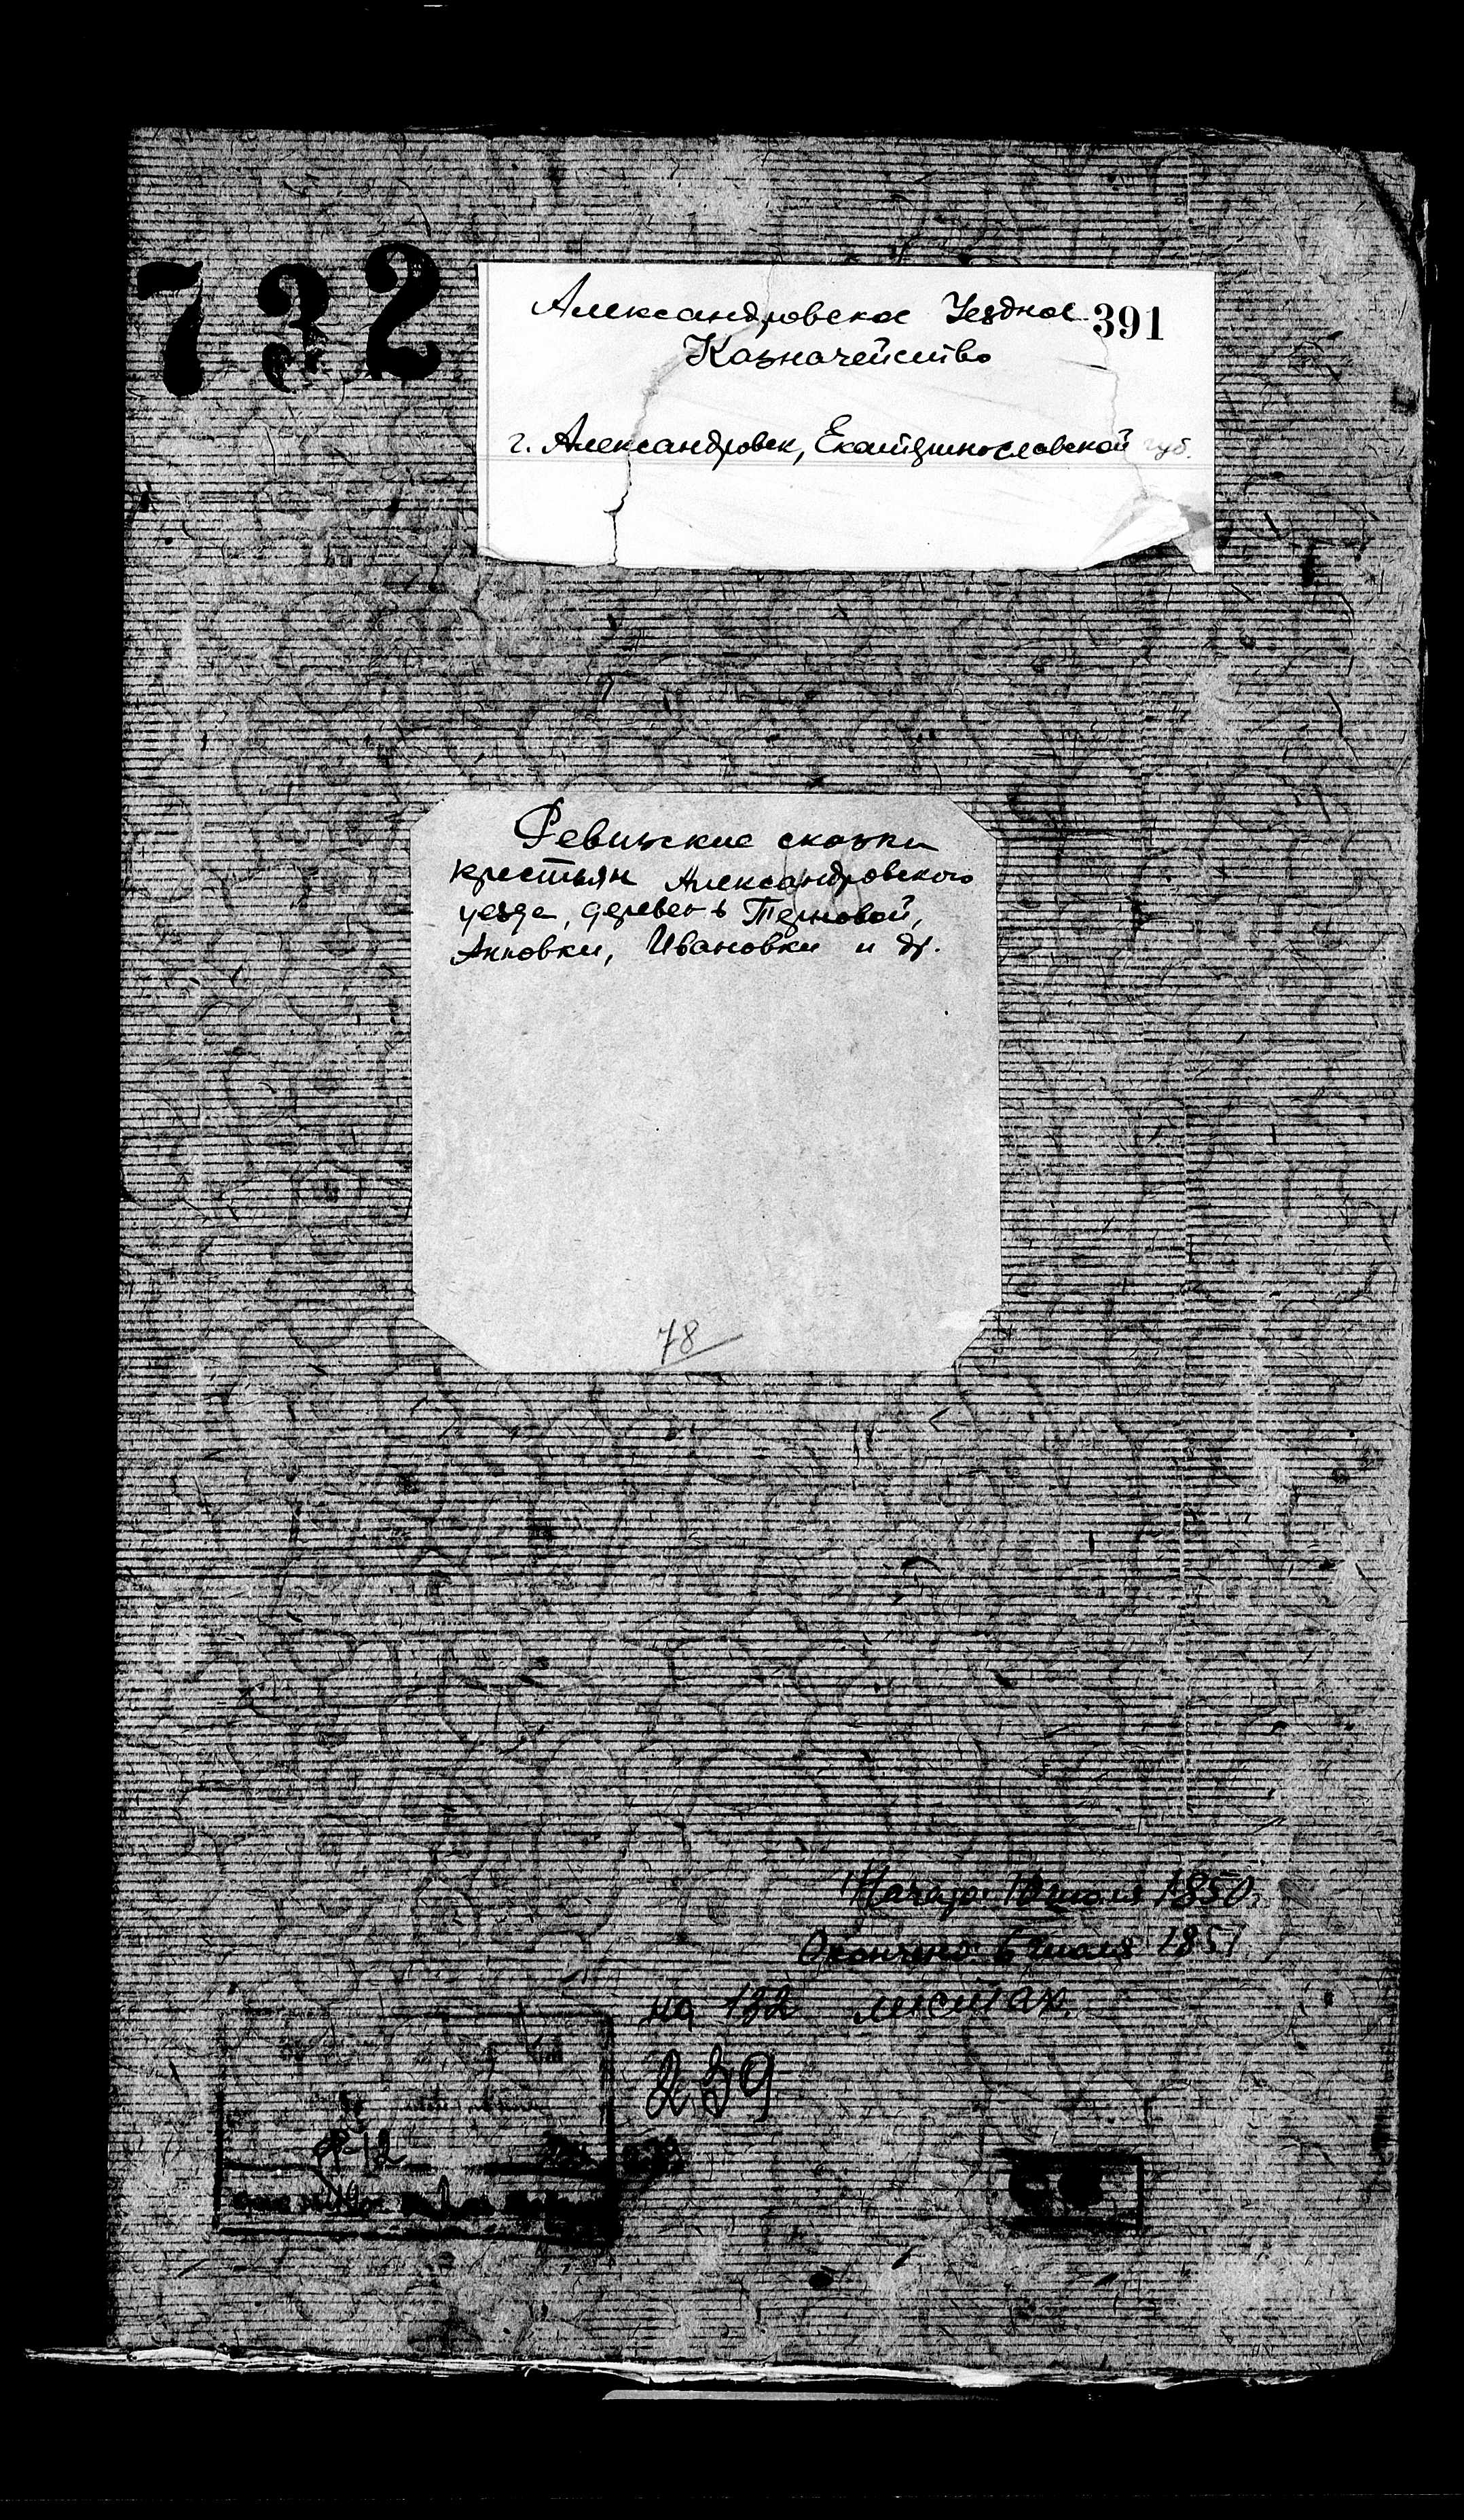 732
Александровское Уездное 391
Казначейство
г. Александровск, Екатеринославской губ.
Ревизские сказки
крестьян Александровского
уезда, деревень Терновой,
Анновки, Ивановки и др.
78
Начато: 10 июля 1850
Окончено: 6 июля 1851
на 132 листах.
239